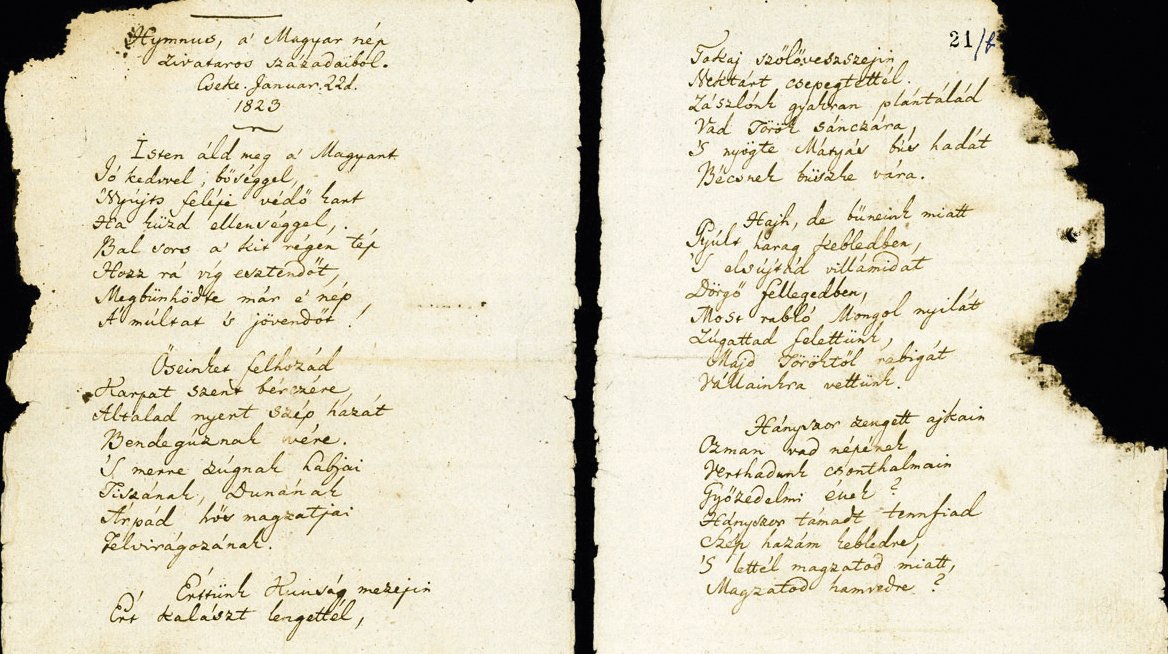 Hymnus, a' Magyar nép
zivataros századaiból.
Cseke. Januar. 22d.
1823
Isten áld meg a' Magyart
Jó kedvvel, bőséggel,
Nyújts feléje védő kart
Ha küzd ellenséggel,
Bal sors a' kit régen tép
Hozz rá víg esztendőt,
Megbünhödte már e' nép
A' múltat 's jövendőt!
Őseinket felhozád
Kárpát szent bérczére
Általad nyert szép hazát
Bendegúznak vére.
'S merre zúgnak habjai
Tiszának, Dunának
Árpád hős magzatjai
Felvirágozának.
Értünk Kunság mezejin
Ért kalászt lengettél,
21/b
Tokaj szőlővesszejin
Nektárt csepegtettél.
Zászlónk gyakran plántálád
Vad Török sánczára,
'S nyögte Mátyás bús hadát
Bécsnek büszke vára.
Hajh, de bűneink miatt
Gyúlt harag kebledben,
'S elsújtád villámidat
Dörgő fellegedben,
Most rabló Mongol nyilát
Zúgattad felettünk,
Majd Töröktől rabigát
Vállainkra vettünk.
Hányszor zengett ajkain
Ozman vad népének
Vert hadunk csonthalmain
Győzedelmi ének?
Hányszor támadt tennfiad
Szép hazám kebledre,
'S lettél magzatod miatt,
Magzatod hamvedre?